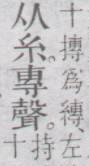 十摶爲縳、左
从糸。專聲。
十持